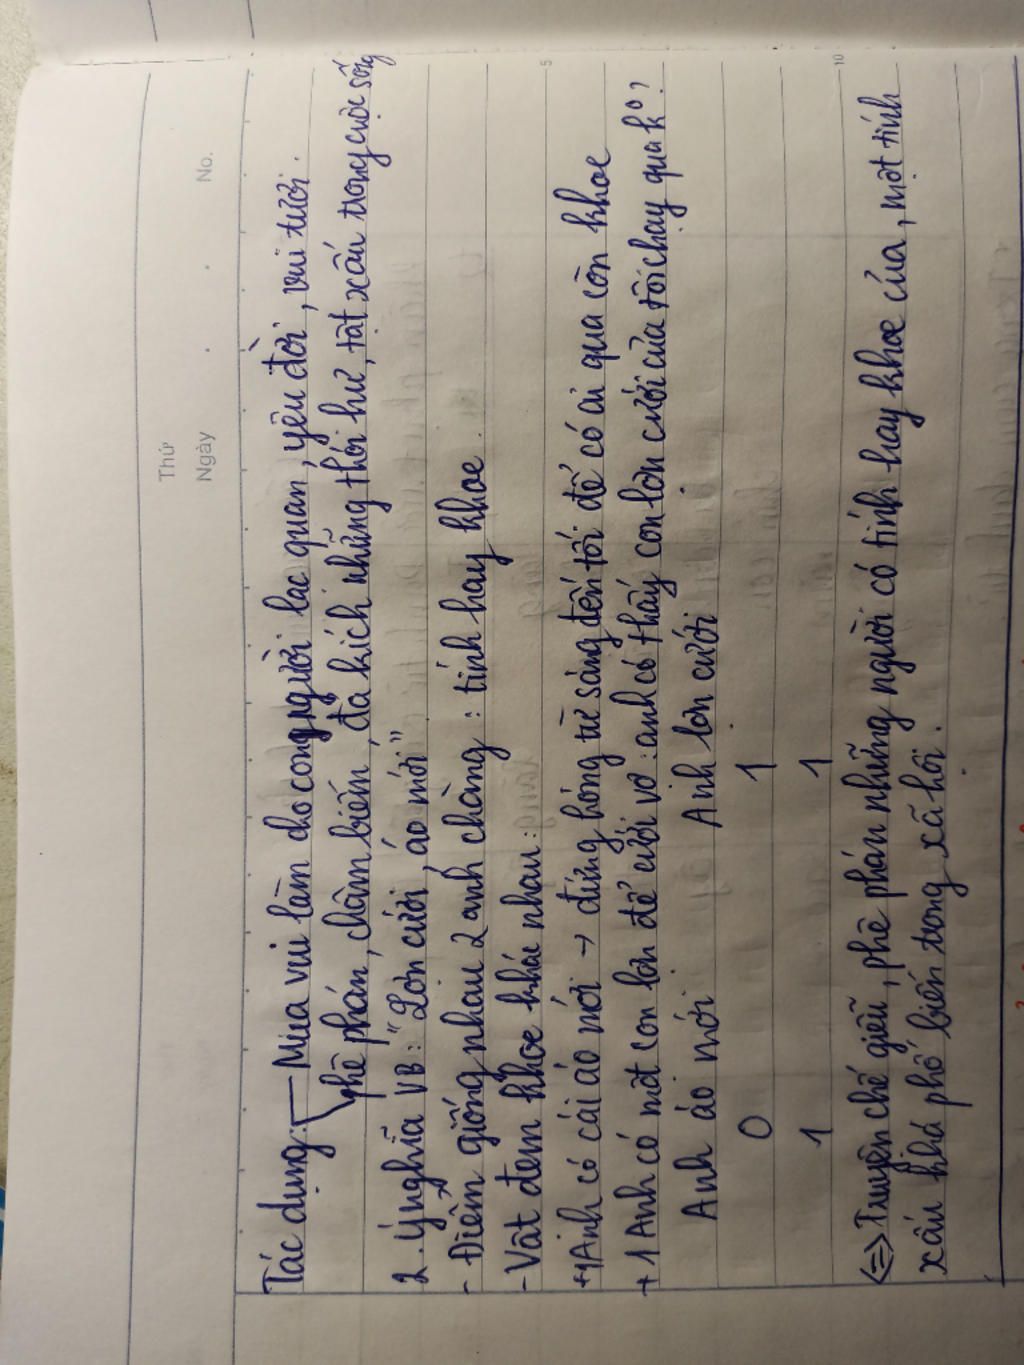 Thứ
Ngày . . No.
Tác dụng: Mua vui làm cho con người lạc quan, yêu đời, vui tươi.
phê phán, châm biếm, đả kích những thói hư, tật xấu trong cuộc sống
2. Ý nghĩa VB: "Lợn cưới, áo mới"
- Điểm giống nhau 2 anh chàng: tính hay khoe.
- Vật đem khoe khác nhau:
+ 1 Anh có cái áo mới → đứng hóng từ sáng đến tối để có ai qua còn khoe
5
+ 1 Anh có một con lợn để cưới vợ: anh có thấy con lợn cưới của tôi chạy qua ko?
Anh áo mới Anh lợn cưới
0 1
1 1
10
<=> Truyện chế giễu, phê phán những người có tính hay khoe của, một tính
xấu khá phổ biến trong xã hội.